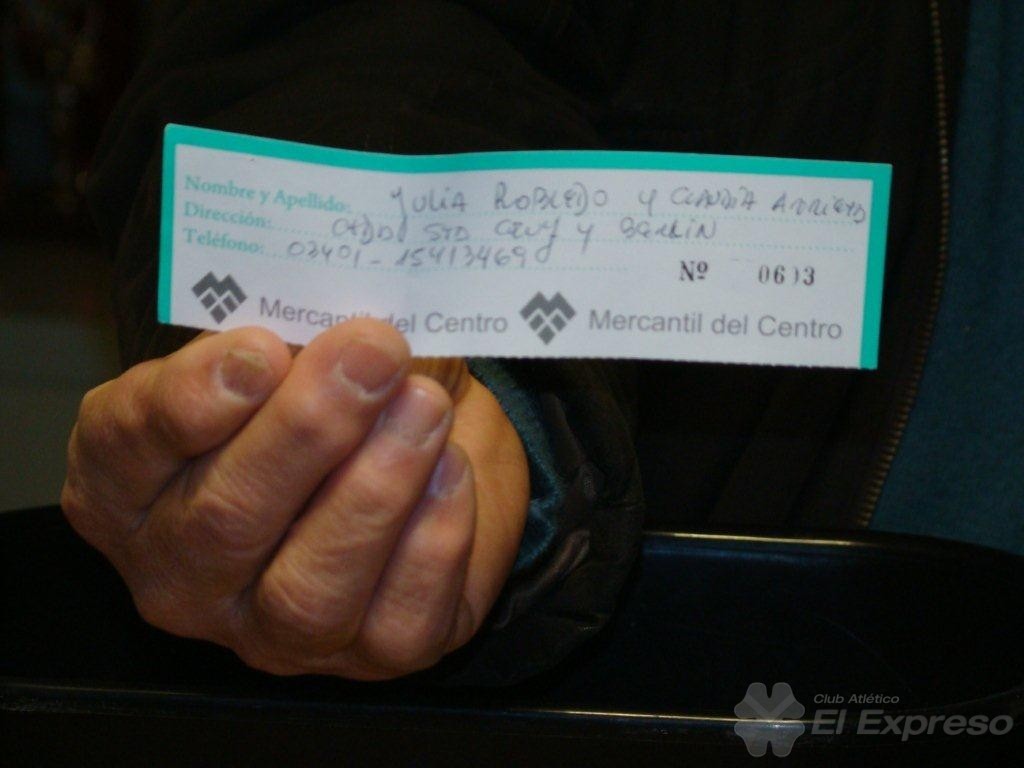 Nombre y Apellido: JULIA ROBLEDO Y CLAUDIA
Dirección: STO Y
Teléfono: 03401-15413469
Nº 0603
Mercantil del Centro Mercantil del Centro
Club Atlético
El Expreso